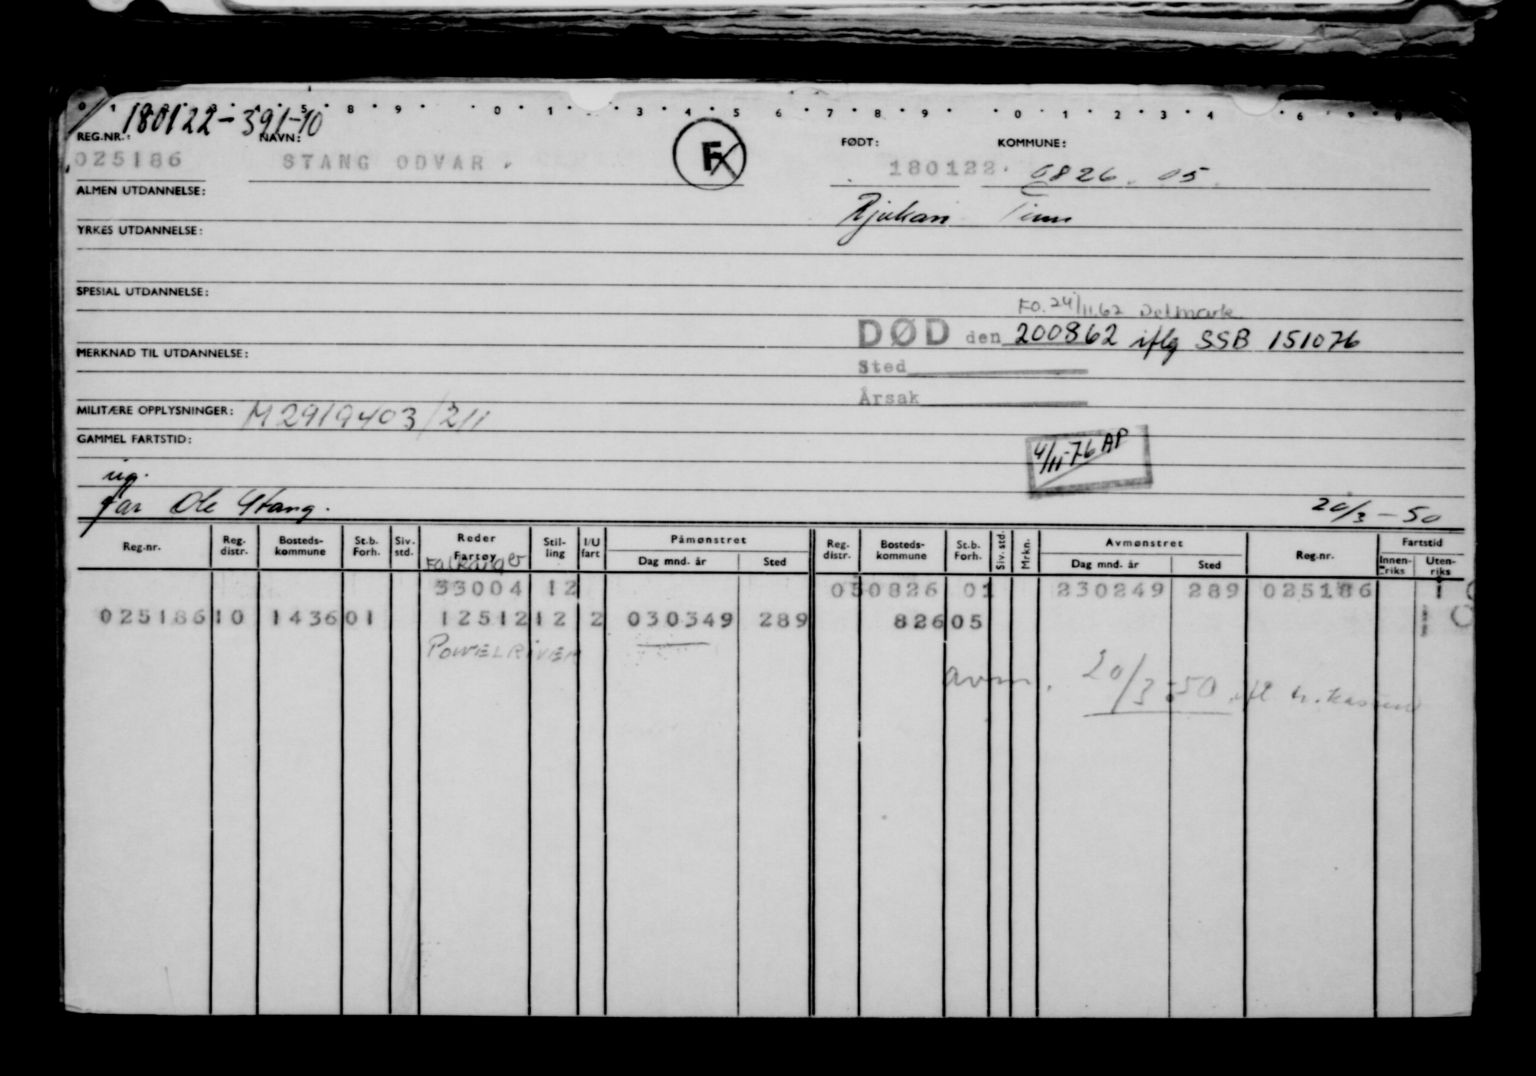 180122-391-10
REG.NR.: NAVN: FØDT: KOMMUNE:
025186 STANG ODVAR. F 180122. 0826.05.
ALMEN UTDANNELSE:
Rjukan Tinn
YRKES UTDANNELSE:
SPESIAL UTDANNELSE:
FO. 24/11.62
DØD den 200862 iflg SSB 151076
MERKNAD TIL UTDANNELSE:
Sted
Årsak
MILITÆRE OPPLYSNINGER: M2919403/211
GAMMEL FARTSTID:
4/11-76 AP
ug.
far Ole Stang. 20/3-50
Reg.nr. Reg. distr. Bosteds-kommune St.b. Forh. Siv. std. Reder Fartøy Stil-ling I/U fart Påmønstret Dag mnd. år Sted Reg. distr. Bosteds-kommune St.b. Forh. Siv. std. Mrkn. Avmønstret Dag mnd. år Sted Reg.nr. Fartstid Innen-riks Uten-riks
Falkanger
33004 12 050826 01 230249 289 025186 1
025186 10 1436 01 12512 12 2 030349 289 826 05
POWELRIVER
avm. 20/3-50 ifl tr.kassen